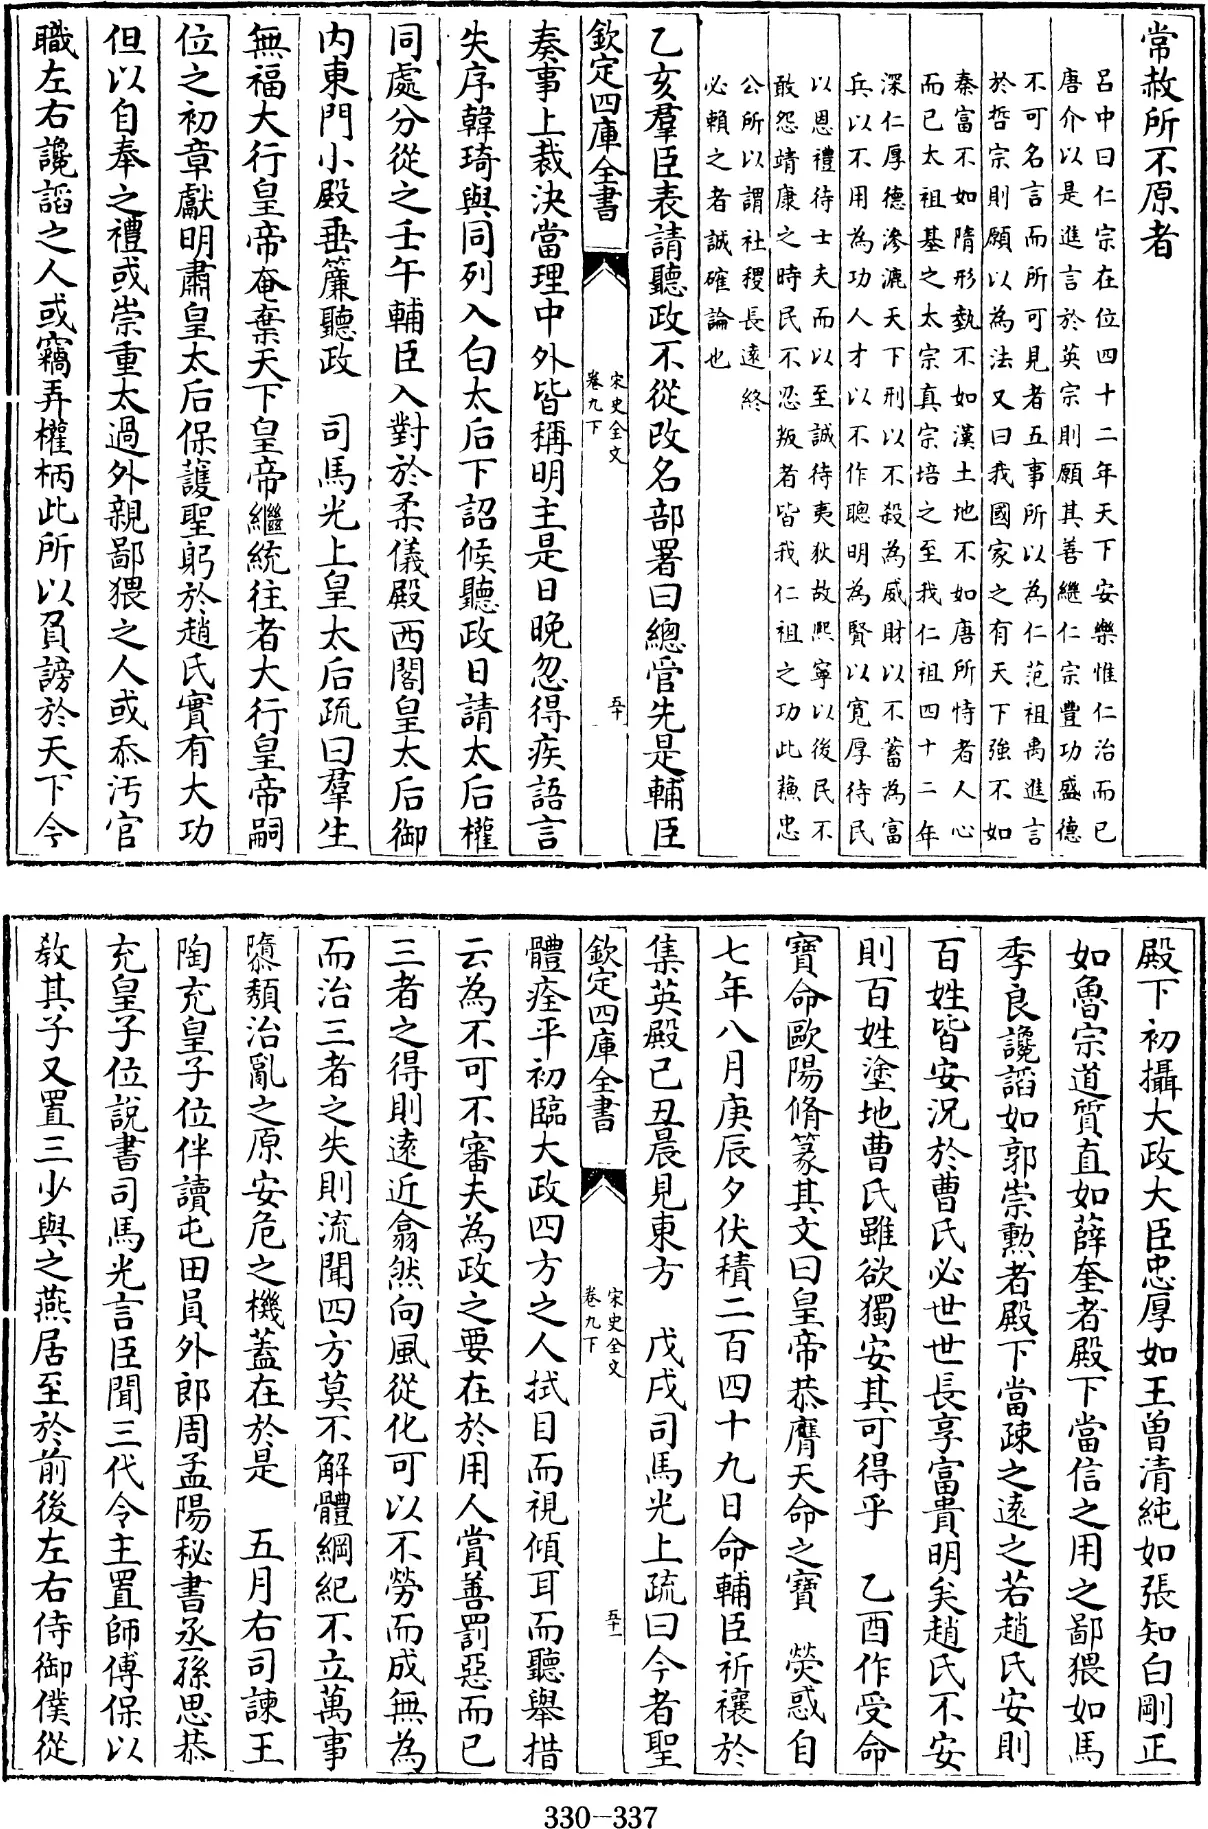 常赦所不原者
呂中曰仁宗在位四十二年天下安樂惟仁治而已
唐介以是進言於英宗則願其善繼仁宗豐功盛德
不可名言而所可見者五事所以為仁范祖禹進言
於哲宗則願以為法又曰我國家之有天下強不如
秦富不如隋形勢不如漢土地不如唐所恃者人心
而已太祖基之太宗真宗培之至我仁祖四十二年
深仁厚德滲漉天下刑以不殺為威財以不蓄為富
兵以不用為功人才以不作聰明為賢以寛厚待民
以恩禮待士夫而以至誠待夷狄故熙寧以後民不
敢怨靖康之時民不忍叛者皆我仁祖之功此蘓忠
公所以謂社稷長逺終
必賴之者誠確論也
乙亥羣臣表請聽政不從改名部署曰總管先是輔臣
欽定四庫全書
宋史全文
卷九下
五十
奏事上裁決當理中外皆稱明主是日晚忽得疾語言
失序韓琦與同列入白太后下詔候聽政日請太后權
同處分從之壬午輔臣入對於柔儀殿西閤皇太后御
内東門小殿垂簾聽政　司馬光上皇太后疏曰羣生
無福大行皇帝奄棄天下皇帝繼統往者大行皇帝嗣
位之初章獻明肅皇太后保護聖躬於趙氏實有大功
但以自奉之禮或崇重太過外親鄙猥之人或忝汚官
職左右讒謟之人或竊弄權柄此所以負謗於天下今
殿下初攝大政大臣忠厚如王曾清純如張知白剛正
如魯宗道質直如薛奎者殿下當信之用之鄙猥如馬
季良讒謟如郭崇勲者殿下當疎之逺之若趙氏安則
百姓皆安況於曹氏必世世長享富貴明矣趙氏不安
則百姓塗地曹氏雖欲獨安其可得乎　乙酉作受命
寶命歐陽脩篆其文曰皇帝恭膺天命之寶　熒惑自
七年八月庚辰夕伏積二百四十九日命輔臣祈禳於
集英殿己丑晨見東方　戊戌司馬光上疏曰今者聖
欽定四庫全書
宋史全文
卷九下
五十一
體痊平初臨大政四方之人拭目而視傾耳而聽舉措
云為不可不審夫為政之要在於用人賞善罰惡而已
三者之得則逺近翕然向風從化可以不勞而成無為
而治三者之失則流聞四方莫不解體綱紀不立萬事
隳頽治亂之原安危之機蓋在於是　五月右司諫王
陶充皇子位伴讀屯田員外郎周孟陽秘書丞孫思恭
充皇子位說書司馬光言臣聞三代令主置師傅保以
敎其子又置三少與之燕居至於前後左右侍御僕從
330—337